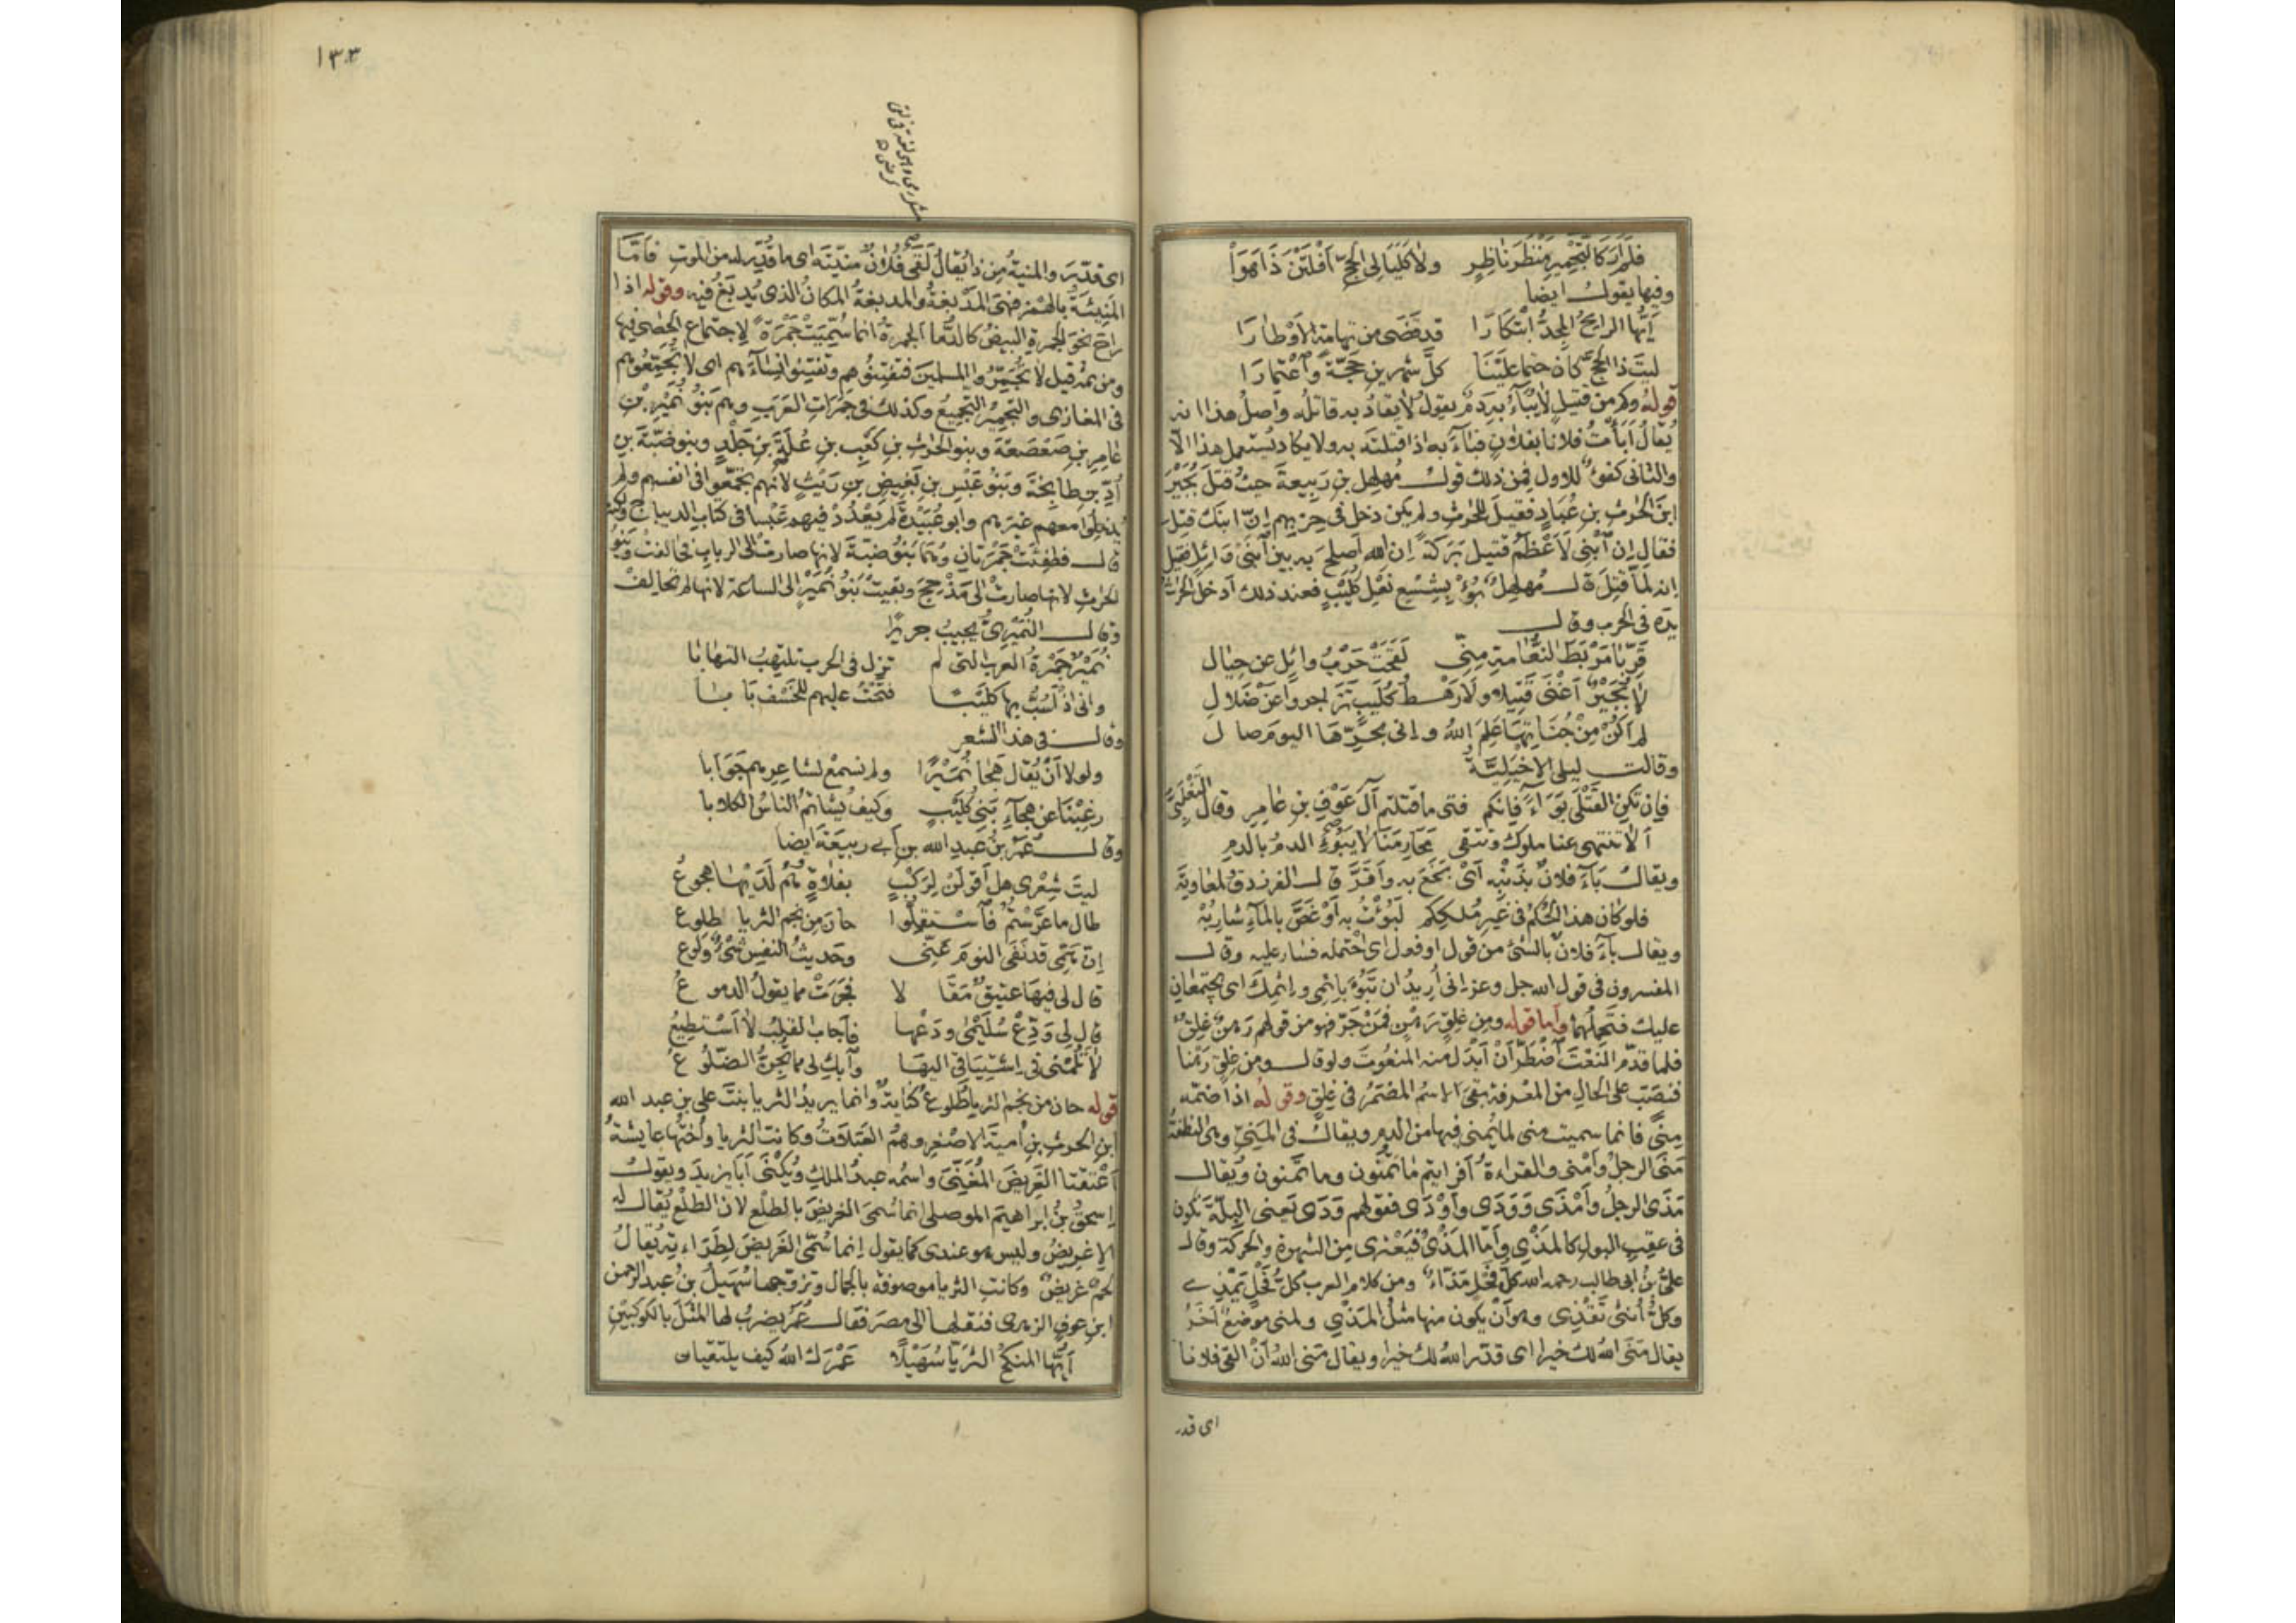 فلم ار كالتجمير منظر ناظر ولا كليالي الحج افلتن ذا هوا
وفيها يقول ايضا
ايها الرايح المجد ابتكارا قد قضى من تهامة الاوطارا
ليت ذا الحج كان حتما علينا كل شهرين حجة واعتمارا
قوله وكم من قتيل لا يباء به دم يقول لا يقاد به قاتله واصل هذا انه
يقال ابأت فلانا بفلان فباء به اذا قتلته به ولا يكاد يستعمل هذا الا
والثاني كفؤ للاول فمن ذلك قول مهلهل بن ربيعة حيث قتل بجير
ابن الحرث بن عباد فقيل للحرث ولم يكن دخل في حربهم ان ابنك قتل
فقال ان ابني لاعظم قتيل بركة ان الله اصلح به بين ابني وائل فقيل
انه لما قتل قال مهلهل بؤ بشسع نعل كليب فعند ذلك ادخل الحرث
يده في الحرب وقال
قربا مربط النعامة مني لقحت حرب وايل عن حيال
لا بجير اغنى قتيلا ولا رهط كليب تزاجروا عن ضلال
لم اكن من جناتها علم الله واني بحرها اليوم صال
وقالت ليلى الاخيلية
فان تكن القتلى بواء فانكم فتى ما قتلتم آل عوف بن عامر وقال التغلبي
الا تنتهي عنا ملوك وتتقي محارمنا لا يبوء الدم بالدم
ويقال باء فلان بذنبه اي بخع به واقر قال الفرزدق لمعاوية
فلو كان هذا الحكم في غير ملككم لبؤت به او غص بالماء شاربه
ويقال باء فلان بالشئ من قول او فعل اي احتمله فصار عليه وقال
المفسرون في قول الله جل وعز اني اريد ان تبوء باثمي واثمك اي يجتمعان
عليك فتحملهما واما قوله ومن غلق رهن فمن جر فهو من قولهم رهن غلق
فلما قدم النعت اضطر ان ابدل منه المنعوت ولو قال ومن غلق رهنا
فنصب على الحال من المعرفة بقي الاسم المضمر في غلق وقوله اذا ضمه
منى فانما سميت منى لما يمنى فيها من الدم ويقال في المني وهي النطفة
منى الرجل وامنى والقراءة افرايتم ما تمنون وما تمنون ويقال
مذى الرجل وامذى وودى واودى فقولهم ودى يعني البلة تكون
في عقب البول كالمذي واما المذي فيعترى من الشهوة والحركة وقال
علي بن ابي طالب رحمه الله كل فحل مذاء ومن كلام العرب كل فحل يمذي
وكل انثى تقذي وهو ان يكون منها مثل المذي ولمنى موضع آخر
يقال منى الله لك خيرا اي قدر الله لك خيرا ويقال منى الله ان القى فلانا
اي قدر
١٣٣
اي قدر والمنية من ذا يقال لقي فلان منيته اي ما قدر له من الموت فاما
المنيئة بالهمز فهي المدبغة والمدبغة المكان الذي يدبغ فيه وقوله اذا
راح نحو الجمرة البيض كالدما الجمرة انما سميت جمرة لاجتماع الحصى فيها
ومن ثمه قيل لا تجمروا المسلمين فتفتنوهم وتفتنوا نساءهم اي لا تجمعوهم
في المغازي والتجمير التجميع وكذلك في جمرات العرب وهم بنو نمير بن
عامر بن صعصعة وبنو الحرث بن كعب بن علة بن جلد وبنو ضبة بن
أد بن طابخة وبنو عبس بن بغيض بن ريث لانهم تجمعوا في انفسهم ولم
يدخلوا معهم غيرهم وابو عبيدة لم يعدد فيهم عبسا في كتاب الديباج ولكنه
قال فطفئت جمرتان وهما بنو ضبة لانها صارت الى الرباب فحالفت وبنو
الحرث لانها صارت الى مذحج وبقيت بنو نمير الى الساعة لانها لم تحالف
وقال النميري يجيب جريرا
نمير جمرة العرب التي لم تزل في الحرب تلتهب التهابا
واني اذ اسب بها كليبا فتحت عليهم للخسف بابا
وقال في هذا الشعر
ولولا ان يقال هجا نميرا ولم نسمع لشاعرهم جوابا
رغبنا عن هجاء بني كليب وكيف يشاتم الناس الكلابا
وقال عمر بن عبد الله بن ابي ربيعة ايضا
ليت شعري هل اقولن لركب بفلاة هم لديها هجوع
طال ما عرستم فاستقلوا حان من نجم الثريا طلوع
ان همي قد نفى النوم عني وحديث النفس شئ ولوع
قال لي فيها عتيق مقالا فجرت مما يقول الدموع
قال لي ودع سليمى ودعها فاجاب القلب لا استطيع
لا تلمني في اشتياقي اليها وابك لي مما تجن الضلوع
قوله حان من نجم الثريا طلوع كناية وانما يريد الثريا بنت علي بن عبد الله
ابن الحرث بن امية الاصغر وهم العبلات وكانت الثريا واختها عايشة
اعتقتا الغريض المغني واسمه عبد الملك ويكنى ابا يزيد ويقول
اسحق بن ابراهيم الموصلي انما سمي الغريض بالطلع لان الطلع يقال له
الاغريض وليس هو عندي كما يقول انما سمي الغريض لطراءته يقال
لحم غريض وكانت الثريا موصوفة بالجمال وتزوجها سهيل بن عبد الرحمن
ابن عوف الزهري فنقلها الى مصر فقال عمر يضرب لها المثل بالكوكبين
ايها المنكح الثريا سهيلا عمرك الله كيف يلتقيان